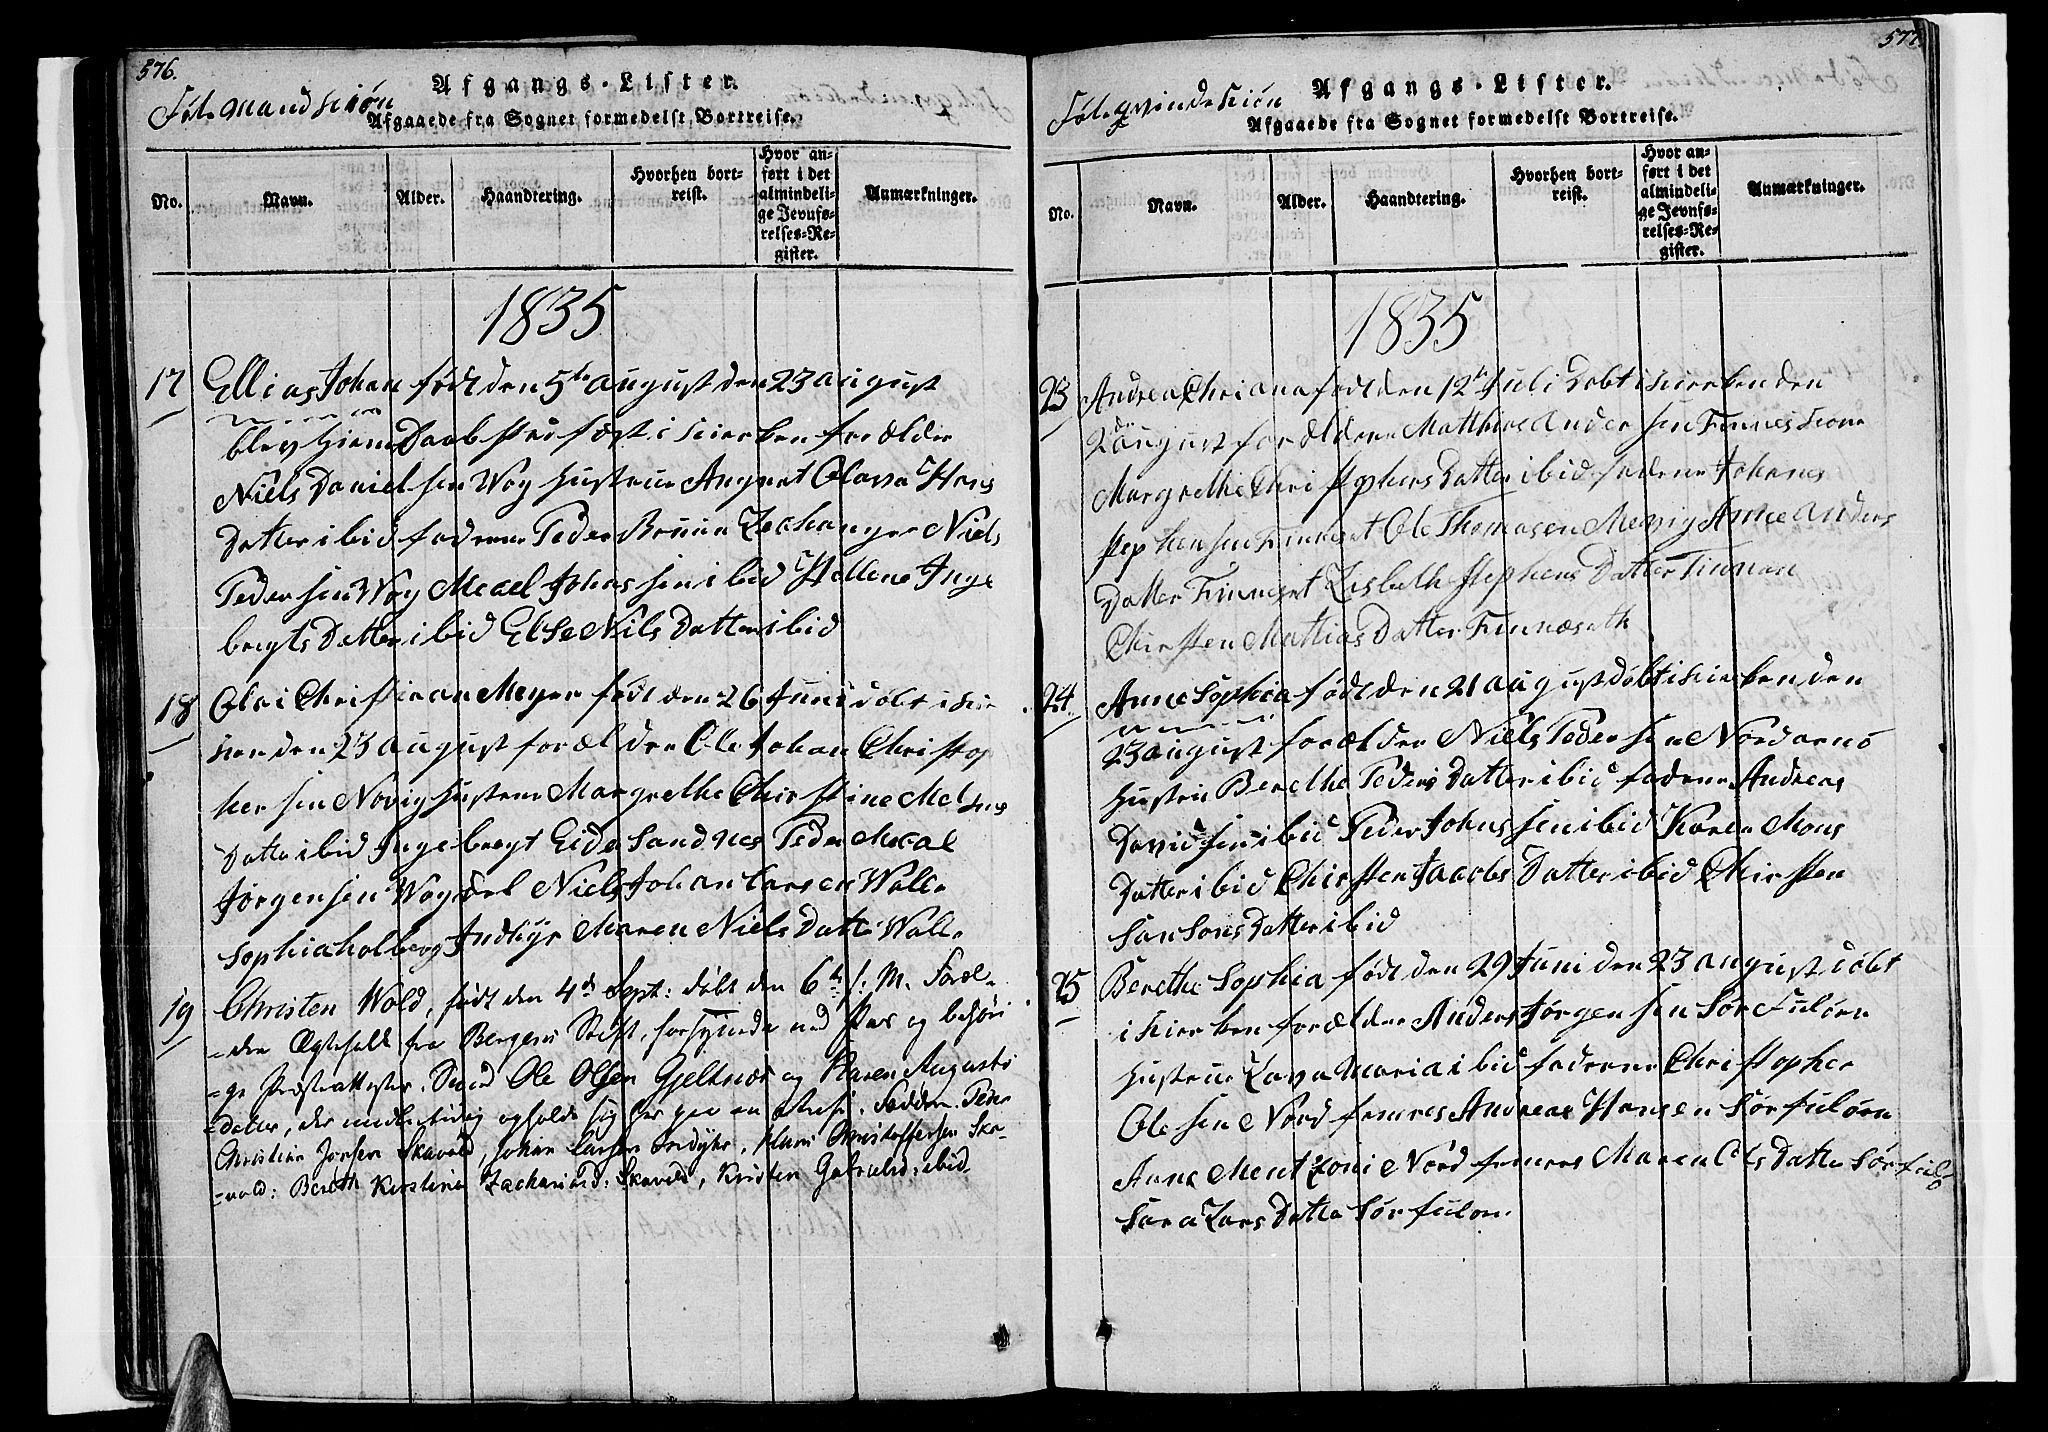 576.
Afgangs-Lister.
Føl. Mandkiøn
Afgaaede fra Sognet formedelst Bortreise.
No.
Navn.
Alder.
Haandtering.
Hvorhen bort-
reist.
Hvor an-
ført i det
almindeli-
ge Jevnfø-
relses-Re-
gister.
Anmærkninger.
1835
17
Ellias Johan født den 5te august den 23 august
blev Hiemedaab i kierken forælder
Niels Daniel sen Wog Hustrue Angnet Olava Hans
Datter ibid fadrene Peder Bruun Niels
Peder sen Wog Mecel Johns sen ibid Hellene Inge
bregts Datter ibid Else Nils Datter ibid
18
Olai Christian Meyer født den 26 Juni døbt i kir
ken den 23 august forældre Ole Johan Christop
her sen Novig Hustrue Margrethe Chirstine
Datter ibid Ingebregt Eide Sandnes Peder Mecal
Jørgensen Wog Niels Johan Larsen Walle
Sophia Holberg Indhÿr Maren Niels Datter Walle
19
Christen Wold, født den 4de Sept: døbt den 6te s: M. Foræl-
-dre Ægtefolk fra Bergens Stift, forsynede med Pas og behøri
-ge Præsteattester. Ole Olsen Gjeltnæs og Karen Augusti
-datter, der midlertidig opholde sig her paa en Reise. Faddere Peder
Christian Jonsen Skavold, Johan Larsen Indhyr, Hans Christoffersen Ska-
-vold: Bereth Kirstina Zachariasd: Skavold, Kirsten Gabrielsd: ibid
577.
Afgangs-Lister.
Føl. Qvindekiøn
Afgaaede fra Sognet formedelst Bortreise.
No.
Navn.
Alder.
Haandtering.
Hvorhen bort-
reist.
Hvor an-
ført i det
almindeli-
ge Jevnfø-
relses-Re-
gister.
Anmærkninger.
1835
23
Andrea Chriana født den 12te Juli Døbt i kierken den
2den august forældrene Matthias Ander sen Finnes kone
Margrethe Christophers Datter ibid fadrene Johanes
Stephensen Finneset Ole Thomasen Mevig Anne Anders
Datter Finneset Lisbeth Stephens Datter Finnæs
Chirsten Mathias Datter Finnæseth
24.
Anne Sophia født den 21 august døbt i kierken den
23 august forældre Niels Peder sen Nordarnø
Hustru Berethe Peders Datter ibid fadrene Andreas
David sen ibid Peder Johns sen ibid Karen Mons
Datter ibid Chirsten Jacobs Datter ibid Chirsten
San Sons Datter ibid
25
Berethe Sophia født den 29 Juni den 23 august døbt
i kierken forældre Anders Jørgen sen Sør Fuløen
Hustrue Lava Maria ibid fadrene Christopher
Olesen Nordfneres Andreas Hansen Sørfuløen
Anne Mentzoni Nordfneres Maren Ols Datter Sørful
ø
Sara Lars Datter Sørfuløn.